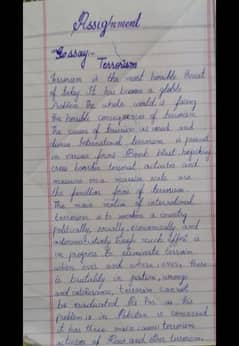 Assignment
Essay:-
Terrorism
Terrorism is the most horrible threat
of today. It has become a globle
problem. The whole world is facing
the horrible consequences of terrorism
The causes of terrorism are many and
diverse. International terrorism is present
in various forms. Bomb blast hijacking
cross boarder terrorist activities and
massacre on a massive scale are
the familiar forms of terrorism.
The main motive of international
terrorism is to weaken a country
politically, socially, economically and
internationally. Enough effort is
in progress to eliminate terrorism
when ever and where ever there
is brutality in
and intolerance, terrorism cannot
be eradicated. As far as this
problem in Pakistan is concerned
it has three main causes terrorism
activism of Raw and other terrorism